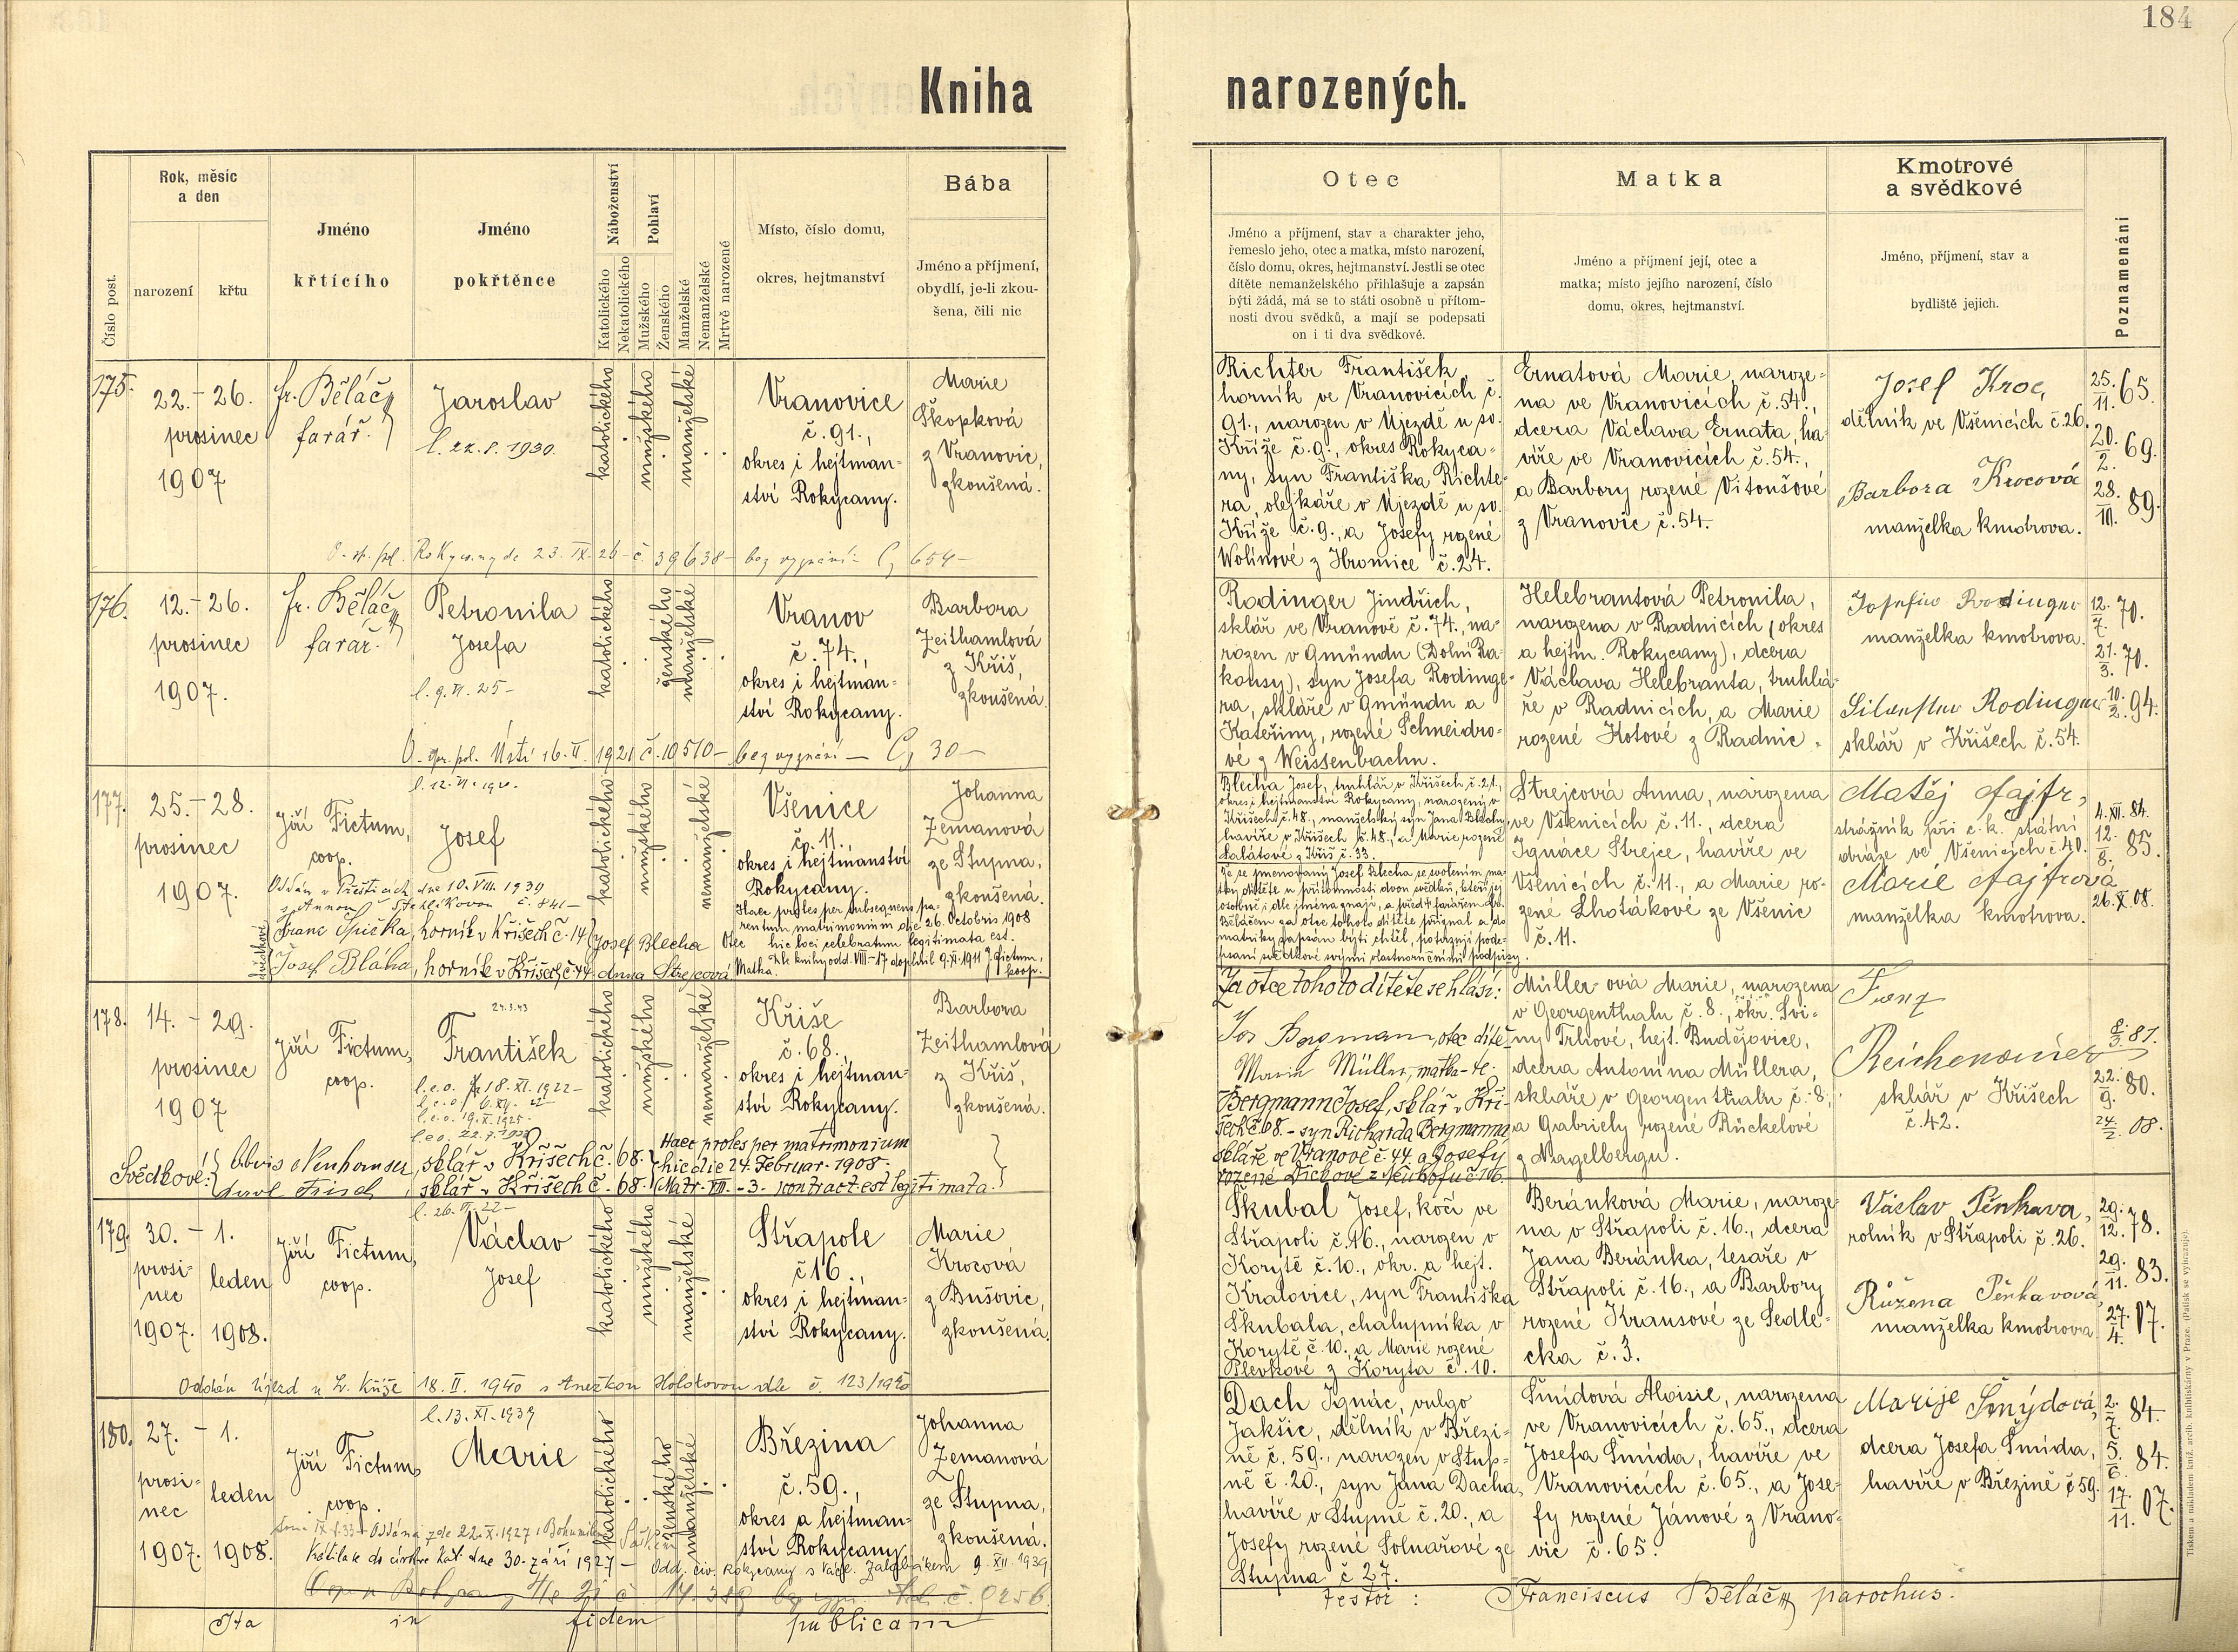 184
Kniha narozených.
Číslo post.
Rok, měsíc
a den
narození
křtu
Jméno
křtícího
Jméno
pokřtěnce
Náboženství
Katolického
Nekatolického
Pohlaví
Mužského
Ženského
Manželské
Nemanželské
Mrtvě narozené
Místo, číslo domu,
okres, hejtmanství
Bába
Jméno a příjmení,
obydlí, je-li zkou-
šena, čili nic
Otec
Jméno a příjmení, stav a charakter jeho,
řemeslo jeho, otec a matka, místo narození,
číslo domu, okres, hejtmanství. Jestli se otec
dítěte nemanželského přihlašuje a zapsán
býti žádá, má se to státi osobně u přítom-
nosti dvou svědků, a mají se podepsati
on i ti dva svědkové.
Matka
Jméno a příjmení její, otec a
matka; místo jejího narození, číslo
domu, okres, hejtmanství.
Kmotrové
a svědkové
Jméno, příjmení, stav a
bydliště jejich.
Poznamenání
175.
22. – 26.
prosinec
1907
fr. Běláč
farář.
Jaroslav
katolického
mužského
manželské
Vranovice
č. 91.,
okres i hejtman-
ství Rokycany.
Marie
Škopková
z Vranovic,
zkoušená.
Richter František,
horník ve Vranovicích č.
91., narozen v Újezdě u sv.
Kříže č. 9., okres Rokyca-
ny, syn Františka Richte-
ra, olejkáře v Újezdě u sv.
Kříže č. 9., a Josefy rozené
Wolínové z Hromice č. 24.
Ernatová Marie, naroze-
na ve Vranovicích č. 54.,
dcera Václava Ernata, ha-
víře ve Vranovicích č. 54.,
a Barbory rozené Vitoušové
z Vranovic č. 54.
Josef Kroc,
dělník ve Všenicích č. 26.
Barbora Krocová
manželka kmotrova.
25./11. 65.
20./2. 69.
28./10. 89.
176.
12. – 26.
prosinec
1907.
fr. Běláč
farář.
Petronila
Josefa
l. 9. VI. 25 –
katolického
ženského
manželské
Vranov
č. 74.,
okres i hejtman-
ství Rokycany.
Barbora
Zeithamlová
z Kříš,
zkoušená.
Rodinger Jindřich,
sklář ve Vranově č. 74., na-
rozen v Gmündu (Dolní Ra-
kousy), syn Josefa Rodinge-
ra, skláře v Gmündu a
Kateřiny, rozené Schneidro-
vé z Weissenbachu.
Helebrantová Petronila,
narozena v Radnicích (okres
a hejtm. Rokycany), dcera
Václava Helebranta, truhlá-
ře v Radnicích, a Marie
rozené Kotové z Radnic.
Josefine Rodinger
manželka kmotrova.
Silvester Rodinger
sklář v Křišech č. 54.
12./7. 70.
21./3. 70.
10./2. 94.
177.
25. – 28.
prosinec
1907.
Jiří Fictum,
coop.
Josef
katolického
mužského
nemanželské
Všenice
č. 11.,
okres i hejtmanství
Rokycany.
Johanna
Zemanová
ze Stupna,
zkoušená.
Oddán v Přešticích dne 10. VIII. 1939
s Annou Stehlíkovou č. 841 –
Haec proles per subsequens pa-
rentum matrimonium die 26. Octobris 1908
hic loci celebratum legitimata est.
Dle knihy odd. VIII – 17 doplnil 9. XI. 1911 J. Fictum,
koop.
svědkové
Franc Špička, horník v Křišech č. 14
Josef Bláha, horník v Křišech č. 44
Josef Blecha Otec
Anna Strejcová Matka.
Blecha Josef, truhlář v Křišech č. 21.,
okres i hejtmanství Rokycany, narozený v
Křišech č. 48., manželský syn Jana Blechy,
havíře v Křišech č. 48., a Marie rozené
Salátové z Kříš č. 33.
Že se jmenovaný Josef Blecha se svolením ma-
tky dítěte u přítomnosti dvou svědků, kteří jej
osobně i dle jména znají, a před farářem fr.
Běláčem za otce tohoto dítěte přiznal a do
matriky zapsán býti chtěl, potvrzují pode-
psaní svědkové svými vlastnoručními podpisy.
Strejcová Anna, narozena
ve Všenicích č. 11., dcera
Ignáce Strejce, havíře ve
Všenicích č. 11., a Marie ro-
zené Lhotákové ze Všenic
č. 11.
Matěj Fajfr,
strážník při c. k. státní
dráze ve Všenicích č. 40.
Marie Fajfrová
manželka kmotrova.
4. XII. 84.
12./8. 85.
26. X. 08.
178.
14. – 29.
prosinec
1907
Jiří Fictum,
coop.
František
katolického
mužského
nemanželské
Kříše
č. 68.,
okres i hejtman-
ství Rokycany.
Barbora
Zeithamlová
z Kříš,
zkoušená.
Svědkové:
Alois Neuhauser, sklář v Křišech č. 68.
Karl Frisch, sklář v Křišech č. 68.
Haec proles per matrimonium
hic die 24. Februar. 1908.
(Matr. VIII. – 3. contract. est legitimata.
Za otce tohoto dítěte se hlásí:
Jos Bergman, otec dítě-
Maria Müller, matka – te.
Bergmann Josef, sklář v Kři-
šech č. 68. – syn Richarda Bergmanna,
skláře ve Vranově č. 44. a Josefy
Müllerová Marie, narozena
v Georgenthalu č. 8., okr. Svi-
ny Trhové, hejt. Budějovice,
dcera Antonína Müllera,
skláře v Georgenthalu č. 8.,
a Gabriely rozené Rückelové
z Nagelbergu.
Franz
Reichenauer
sklář v Křišech
č. 42.
8./3. 81.
22./9. 80.
24./2. 08.
179.
30. – 1.
prosi-
nec
leden
1907. 1908.
Jiří Fictum,
coop.
Václav
Josef
katolického
mužského
manželské
Střapole
č. 16.,
okres i hejtman-
ství Rokycany.
Marie
Krocová
z Bušovic,
zkoušená.
Oddán Újezd u Sv. Kříže 18. II. 1940 s Anežkou Holokovou dle č. 123/1940
Škubal Josef, kočí ve
Střapoli č. 16., narozen v
Korytě č. 10., okr. a hejt.
Kralovice, syn Františka
Škubala, chalupníka v
Korytě č. 10., a Marie rozené
Plevkové z Koryta č. 10.
Beránková Marie, naroze-
na v Střapoli č. 16., dcera
Jana Beránka, tesaře v
Střapoli č. 16., a Barbory
rozené Krausové ze Sedle-
cka č. 3.
Václav Pěnkava,
rolník v Střapoli č. 26.
Růžena Pěnkavová
manželka kmotrova
29./12. 78.
29./11. 83.
27./4. 07.
180.
27. – 1.
prosi-
nec
leden
1907. 1908.
l. 13. XI. 1939
Jiří Fictum,
coop.
Marie
katolického
ženského
manželské
Březina
č. 59.,
okres a hejtman-
ství Rokycany.
Johanna
Zemanová
ze Stupna,
zkoušená.
Dach Ignác, vulgo
Jakšic, dělník v Březi-
ně č. 59., narozen v Stup-
ně č. 20., syn Jana Dacha,
havíře v Stupně č. 20., a
Josefy rozené Solnařové ze
Stupna č. 27.
Šmídová Aloisie, narozena
ve Vranovicích č. 65., dcera
Josefa Šmída, havíře ve
Vranovicích č. 65., a Jose-
fy rozené Jánové z Vrano-
vic č. 65.
Marije Šmýdová,
dcera Josefa Šmída,
havíře v Březině č. 59.
2./7. 84.
5./6. 84.
17./11. 07.
Ita in fidem publicam
testor: Franciscus Běláč parochus.